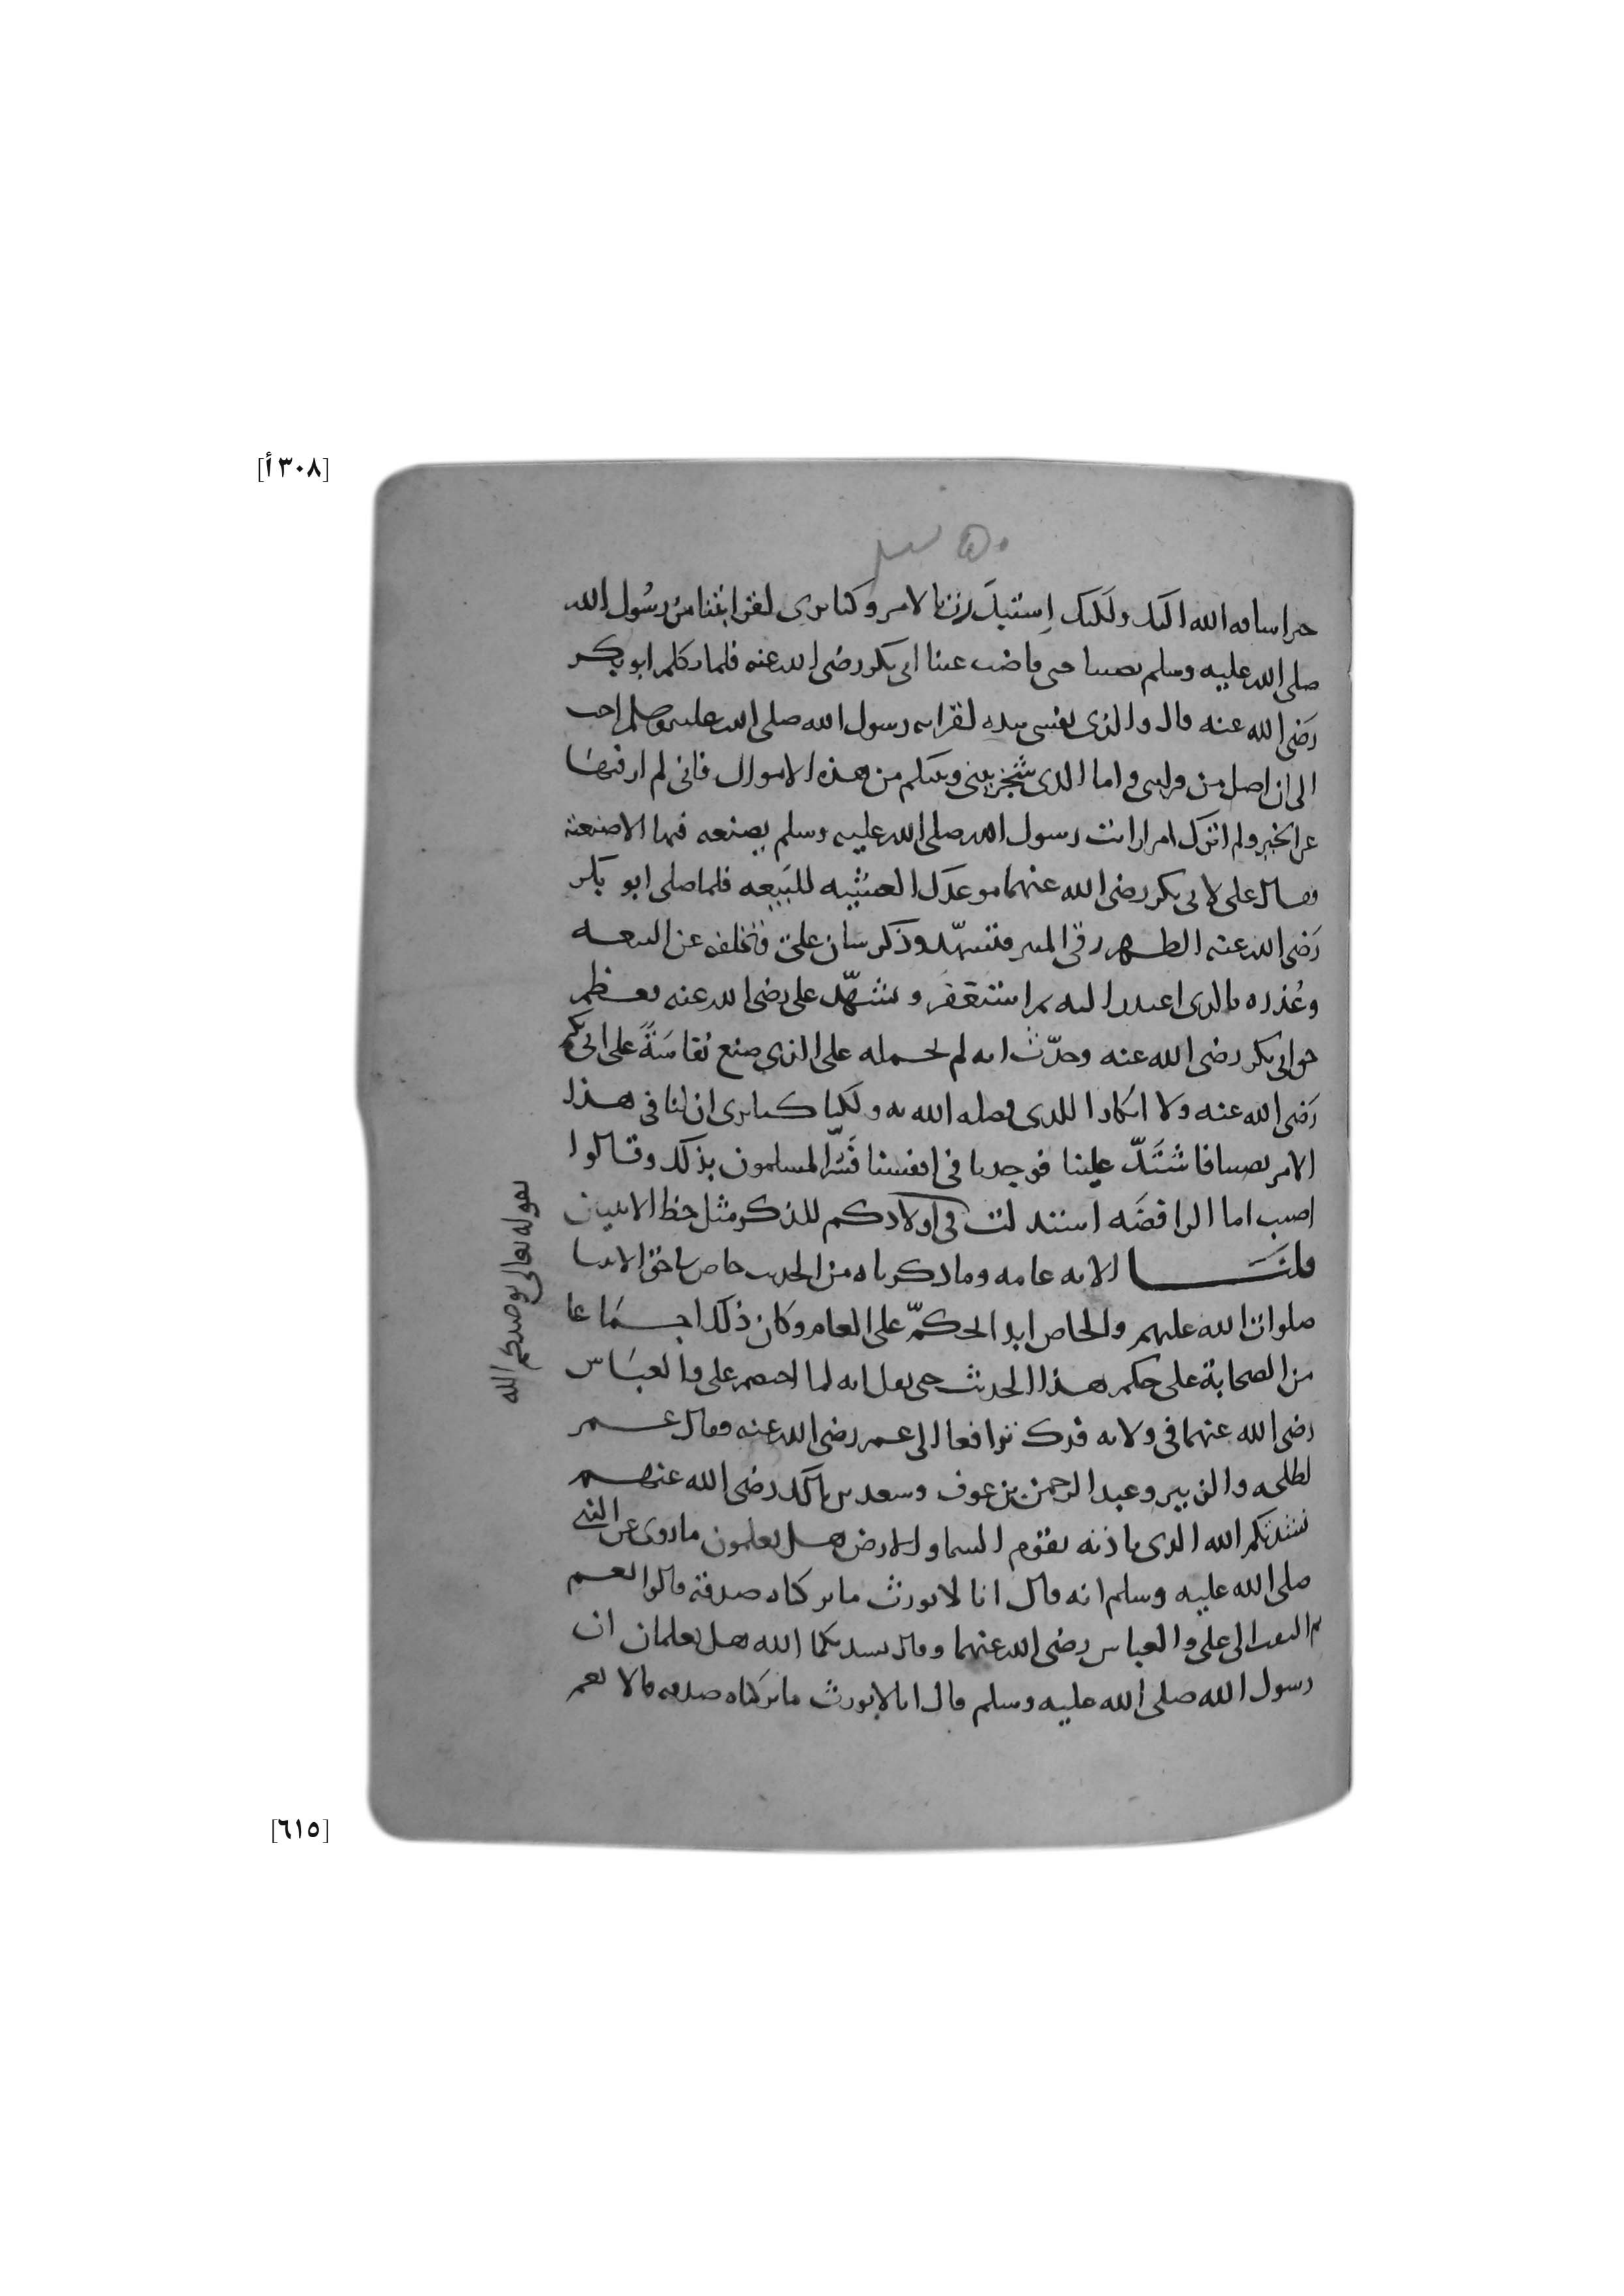 [٣٠٨أ]
خيرا ساقه الله اليك ولكنك استبددت بالامر وكنا نرى لقرابتنا من رسول الله
صلى الله عليه وسلم نصيبا حتى فاضت عينا ابي بكر رضي الله عنه فلما تكلم ابو بكر
رضي الله عنه قال والذي نفسي بيده لقرابة رسول الله صلى الله عليه وسلم احب
الي ان اصل من قرابتي واما الذي شجر بيني وبينكم من هذه الاموال فاني لم ال فيها
عن الخير ولم اترك امرا رايت رسول الله صلى الله عليه وسلم يصنعه فيها الا صنعته
فقال علي لابي بكر رضي الله عنهما موعدك العشية للبيعه فلما صلى ابو بكر
رضي الله عنه الظهر رقى المنبر فتشهد وذكر شان علي وتخلفه عن البيعه
وعذره بالذي اعتذر اليه ثم استغفر وتشهد علي رضي الله عنه فعظم
حق ابي بكر رضي الله عنه وحدث انه لم يحمله على الذي صنع نفاسة على ابي بكر
رضي الله عنه ولا انكارا للذي فضله الله به ولكنا كنا نرى ان لنا في هذا
الامر نصيبا فاشتد علينا فوجدنا في انفسنا فسر المسلمون بذلك وقالوا
اصبت اما الرافضه استدلت في اولادكم للذكر مثل حظ الانثيين
بقوله تعالى يوصيكم الله
قلنا الايه عامه وما ذكرناه من الحديث خاص في حق الانبيا
صلوات الله عليهم والخاص ابدا يحكم على العام وكان ذلك اجماعا
من الصحابة على حكم هذا الحديث حتى نقل انه لما اختصم علي والعباس
رضي الله عنهما في ولايه فدك ترافعا الى عمر رضي الله عنه فقال عمر
لطلحه والزبير وعبد الرحمن بن عوف وسعد بن مالك رضي الله عنهم
نشدتكم الله الذي باذنه تقوم السما والارض هل تعلمون ما روى عن النبي
صلى الله عليه وسلم انه قال انا لا نورث ما تركناه صدقة قالوا نعم
ثم التفت الى علي والعباس رضي الله عنهما وقال نشدتكما الله هل تعلمان ان
رسول الله صلى الله عليه وسلم قال انا لا نورث ما تركناه صدقه قالا نعم
[٦١٥]